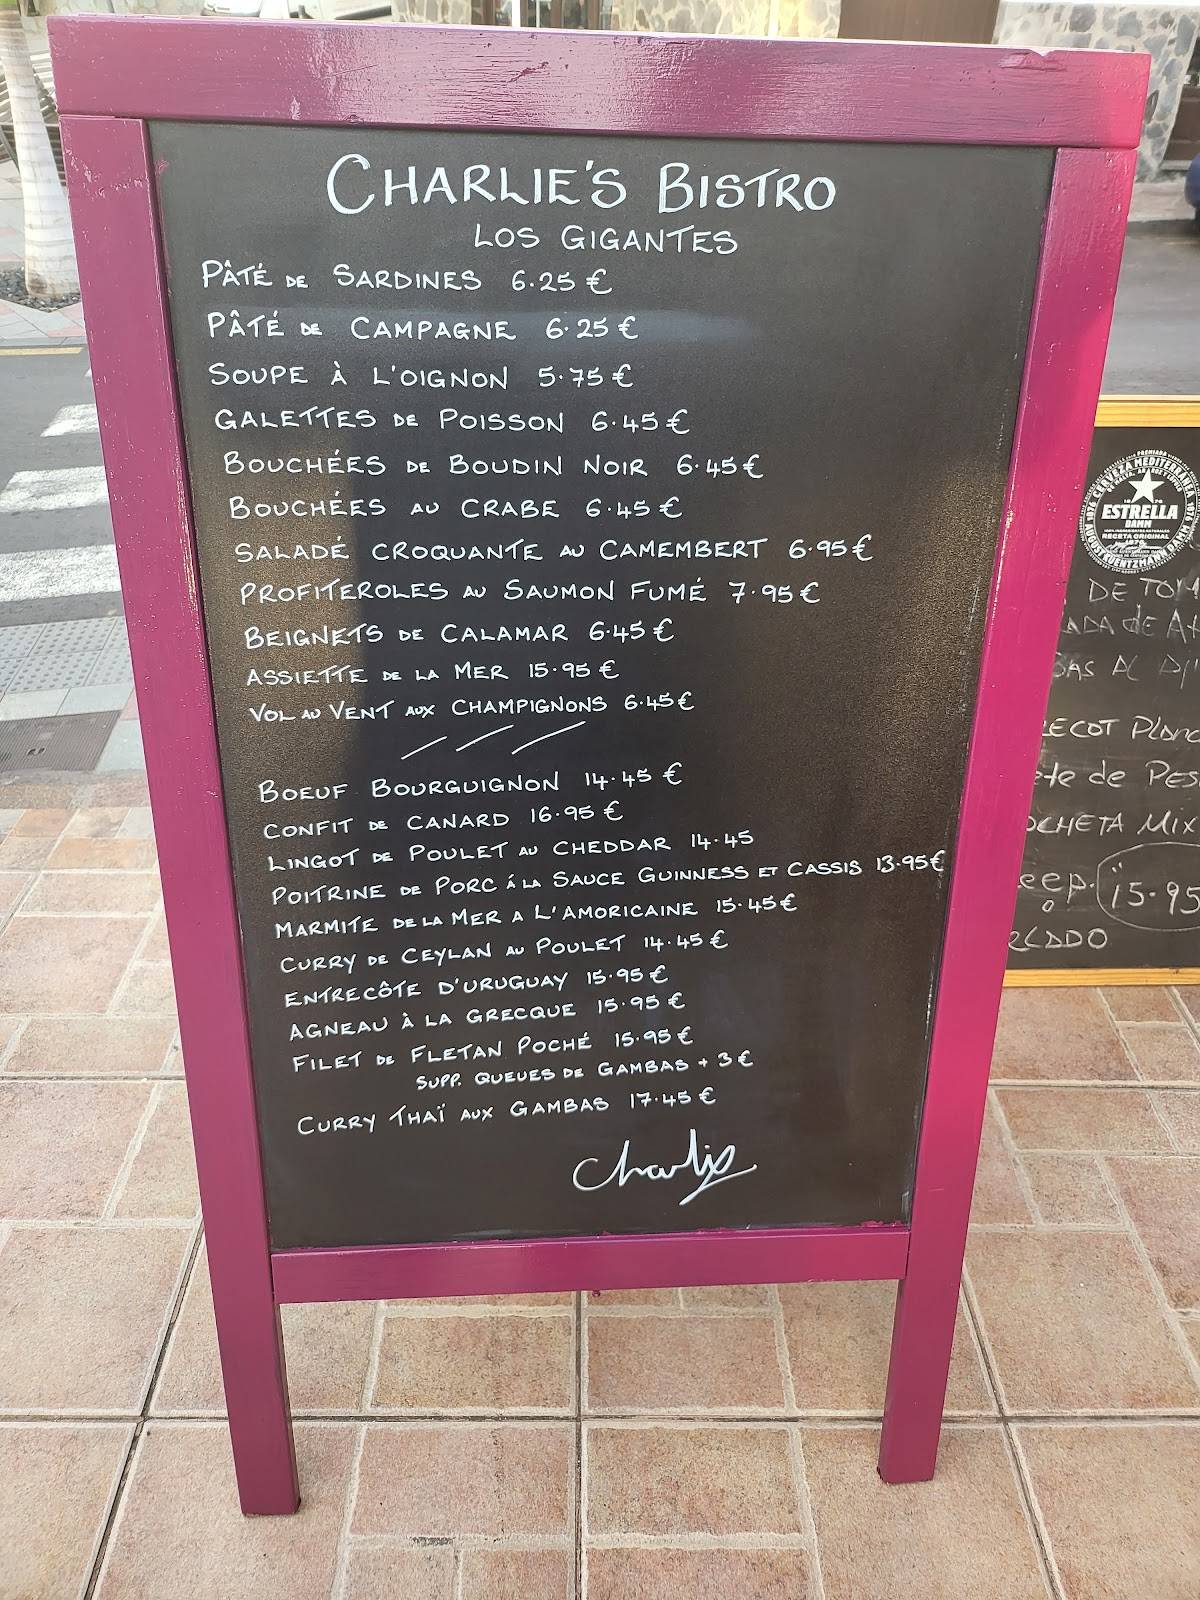 CHARLIE'S BISTRO
LOS GIGANTES
PÂTÉ DE SARDINES 6.25 €
PÂTÉ DE CAMPAGNE 6.25 €
SOUPE À L'OIGNON 5.75 €
GALETTES DE POISSON 6.45 €
BOUCHÉES DE BOUDIN NOIR 6.45 €
BOUCHÉES AU CRABE 6.45 €
SALADÉ CROQUANTE AU CAMEMBERT 6.95 €
PROFITEROLES AU SAUMON FUMÉ 7.95 €
BEIGNETS DE CALAMAR 6.45 €
ASSIETTE DE LA MER 15.95 €
VOL AU VENT AUX CHAMPIGNONS 6.45 €
BOEUF BOURGUIGNON 14.45 €
CONFIT DE CANARD 16.95 €
LINGOT DE POULET AU CHEDDAR 14.45
POITRINE DE PORC Á LA SAUCE GUINNESS ET CASSIS 13.95 €
MARMITE DE LA MER A L'AMORICAINE 15.45 €
CURRY DE CEYLAN AU POULET 14.45 €
ENTRECÔTE D'URUGUAY 15.95 €
AGNEAU À LA GRECQUE 15.95 €
FILET DE FLETAN POCHÉ 15.95 €
SUPP. QUEUES DE GAMBAS + 3 €
CURRY THAÏ AUX GAMBAS 17.45 €
Charlie
CERVEZA MEDITERRÁNEA
1876
ESTRELLA
DAMM
RECETA ORIGINAL
1876
AUGUST KUENTZMANN DAMM
DE TOM
ADA de At
AL
ECOT Planc
te de PES
OCHETA MIX
eep. 15.95
RCADO